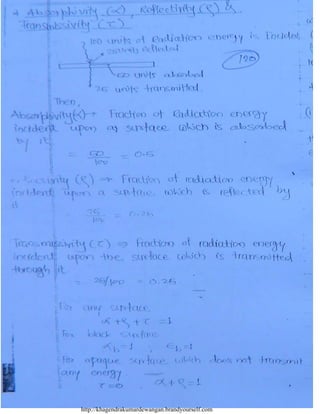 4 Absorptivity (α), Reflectivity (ρ) &
Transmissivity (τ).
100 units of Radiation energy is Incident
25 units reflected
120
50 units absorbed
25 units transmitted.
Then,
Absorptivity(α) → Fraction of Radiation energy
incident upon a surface which is absorbed
by it
= 50/100 = 0.5
(ρ) ⇒ Fraction of radiation energy
incident upon a surface which is reflected by
it
= 25/100 = 0.25
Transmissivity (τ) ⇒ Fraction of radiation energy
incident upon the surface which is transmitted
through it
= 25/100 = 0.25
For any surface
α + ρ + τ = 1
For black surface
αb = 1 , εb = 1
For opaque surface which does not transmit
any energy
τ = 0 , α + ρ = 1
http://khagendrakumardewangan.brandyourself.com